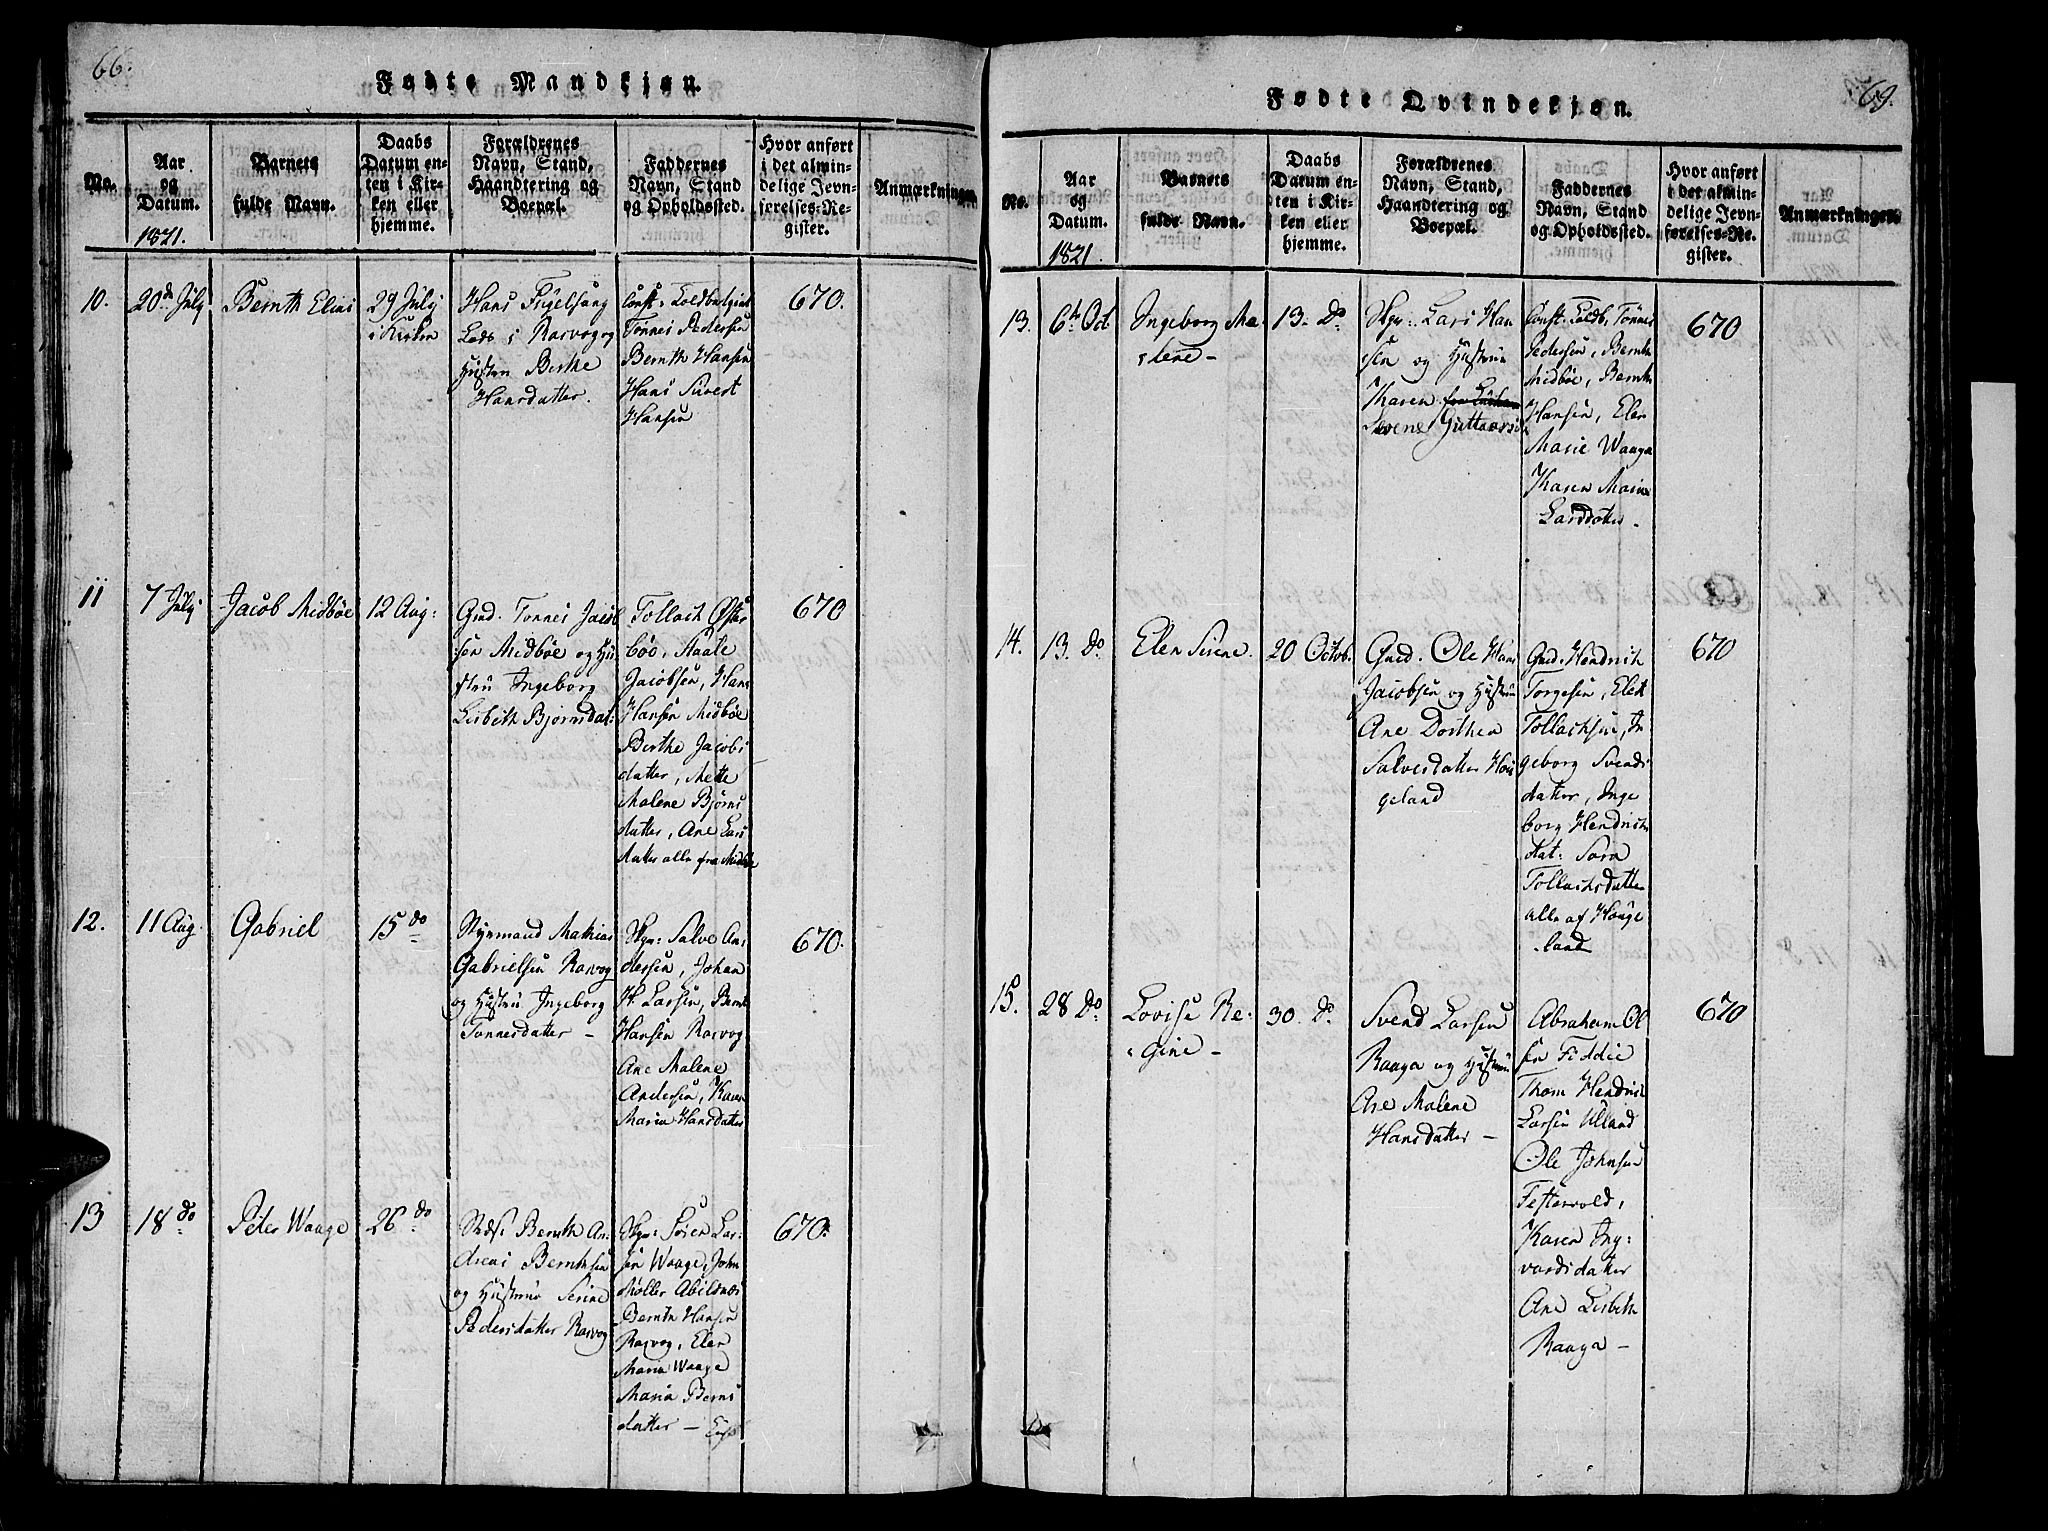 66.
Fødte Mandkjøn.
No.
Aar
og
Datum.
1821.
Barnets
fulde Navn.
Daabs
Datum en-
ten i Kir-
ken eller
hjemme.
Forældrenes
Navn, Stand,
Haandtering og
Boepæl.
Faddernes
Navn, Stand
og Opholdssted.
Hvor anført
i det almin-
delige Jevn-
førelses-Re-
gister.
Anmærkninger.
10.
20de July
Bernth Elias
29 July
i Kirken
Hans Figelsang
Lods i Rasvog og
Hustru Berthe
Hansdatter.
Const: Toldbetjent
Tønnes Pedersen
Bernth Hansen
Hans Sivert
Hansen
670.
11
7 July
Jacob Midbøe
12 Aug:
Gmd. Tønnes Jacob
sen Midbøe og Hu
stru Ingeborg
Lisbeth Bjørnsdat:
Tollach Øster
bøe, Staale
Jacobsen, Hans
Hansen Midbøe
Berthe Jacobs
datter, Mette
Malene Bjørns
datter, Ane Lars
datter alle fra Midbøe
670
12.
11 Aug.
Gabriel
15 do
Styrmand Mathias
Gabrielsen Rasvog
og Hustru Ingeborg
Tønnesdatter –
Skpr: Salve An:
dersen, Johan
H. Larsen, Bernt
Hansen Rasvog
Ane Malene
Andersen, Karen
Maria Hansdatter
670.
13
18 do
Peder Waage
26 do
Bernth An:
dreas Bernthsen
og Hustrue Serine
Pedersdatter Rasvog
Skpr: Søren Lar:
sen Waage, John
Møller Abildnes
Bernth Hansen
Rasvog, Elen
Maria Waage
Maria Bernts
datter –
670.
69.
Fødte Qvindekjøn.
No.
Aar
og
Datum.
1821.
Barnets
fulde Navn.
Daabs
Datum en-
ten i Kir-
ken eller
hjemme.
Forældrenes
Navn, Stand,
Haandtering og
Boepæl.
Faddernes
Navn, Stand
og Opholdssted.
Hvor anført
i det almin-
delige Jevn-
førelses-Re-
gister.
Anmærkninger.
13.
6te Oct
Ingeborg Ma:
lene –
13. Do
Skpr: Lars Han
sen og Hustrue
Karen
Const. Toldb. Tønnes
Pedersen, Bernth
Midbøe, Bernth
Hansen, Elen
Marie Waage
Karen Marie
Larsdatter –
670
14.
13. Do
Elen Sirene.
20 Octob.
Gmd. Ole Hans
Jacobsen og Hustrue
Ane Dorthea
Salvesdatter Hou
geland
Gmd. Hendrich
Torgesen, Elek
Tollachsen, In
geborg Svends
datter, Inge
borg Hendrichs
dat: Sara
Tollachsdatter
alle af Houge
land
670
15.
28 Do
Lovise Re:
gine –
30. Do
Svend Larsen
Raaga og Hustrue
Ane Malene
Hansdatter –
Abraham Ol
sen Fiddie
Thom Hendrich
Larsen Ulland
Ole Johnsen
Festervold,
Karen Ing:
vardsdatter
Ane Lisbeth
Raaga –
670